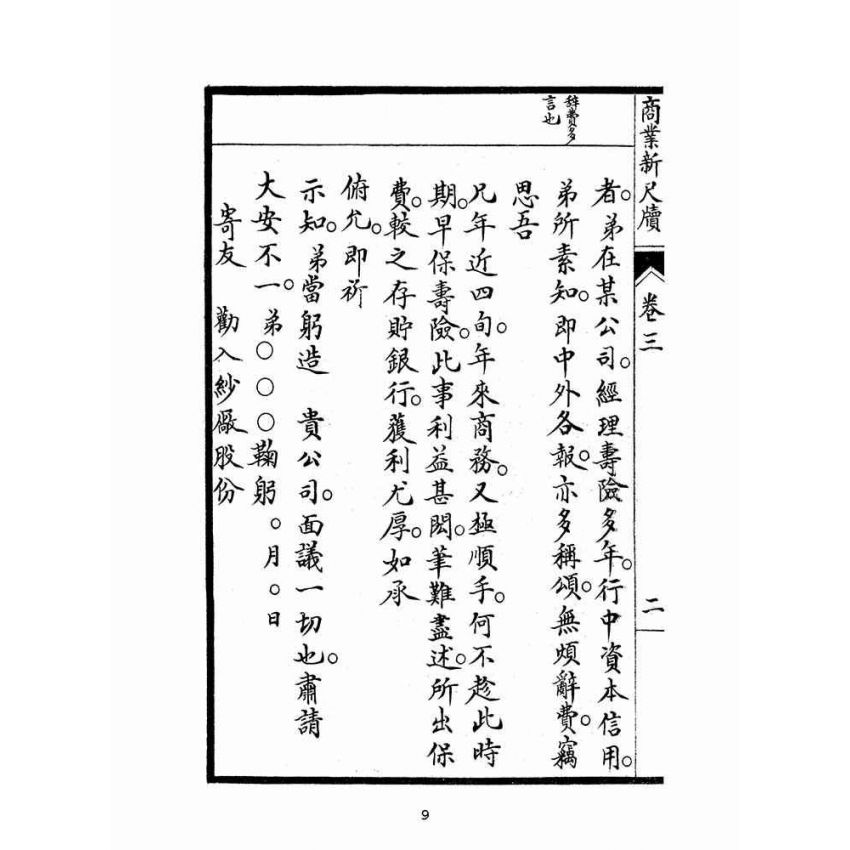 商業新尺牘 卷三 二
辭費多
言也
者。弟在某公司。經理壽險多年。行中資本信用。
弟所素知。即中外各報。亦多稱頌。無煩辭費。竊
思吾
兄年近四旬。年來商務。又極順手。何不趁此時
期。早保壽險。此事利益甚閎。筆難盡述。所出保
費。較之存貯銀行。獲利尤厚。如承
俯允。即祈
示知。弟當躬造 貴公司。面議一切也。肅請
大安不一。弟○○○鞠躬 ○月○日
寄友 勸入紗廠股份
9